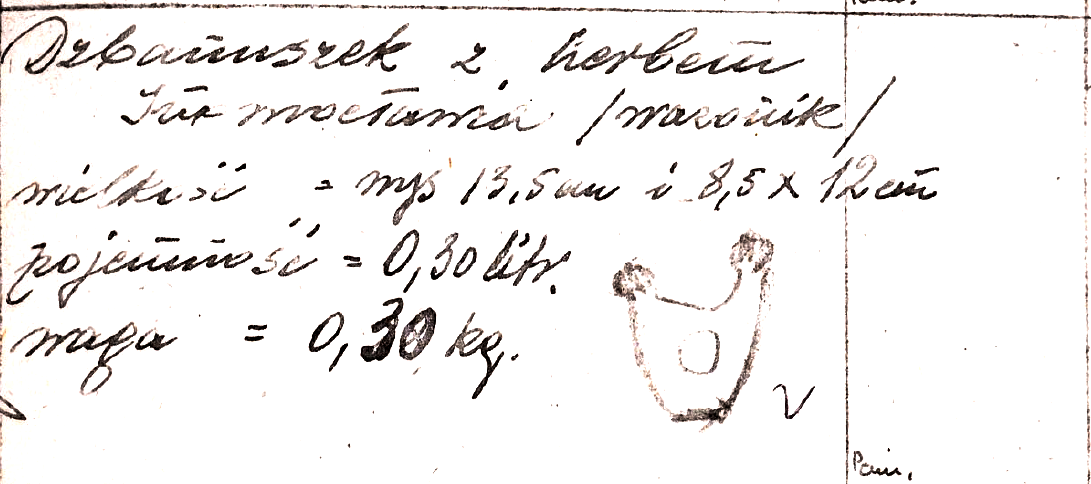 Dzbanuszek z herbem
Inowrocławia /wazonik/
wielkość = wys 13,5 cm i 8,5 x 12 cm
pojemność = 0,30 litr.
waga = 0,30 kg.
V
Pam.